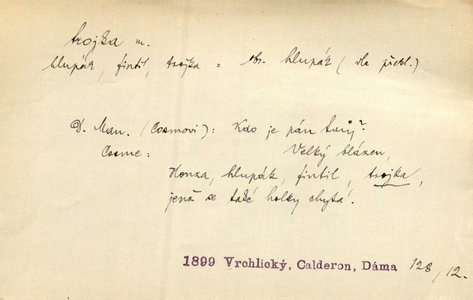 trojka m.
hlupák, fintil, trojka = obr. hlupák (dle překl.)
D. Man. (Cosmovi): Kdo je pán tvůj?
Cosme: Velký blázen,
Honza, hlupák, fintil, trojka,
jenž se také holky chytá.
1899 Vrchlický, Calderon, Dáma 128/12.